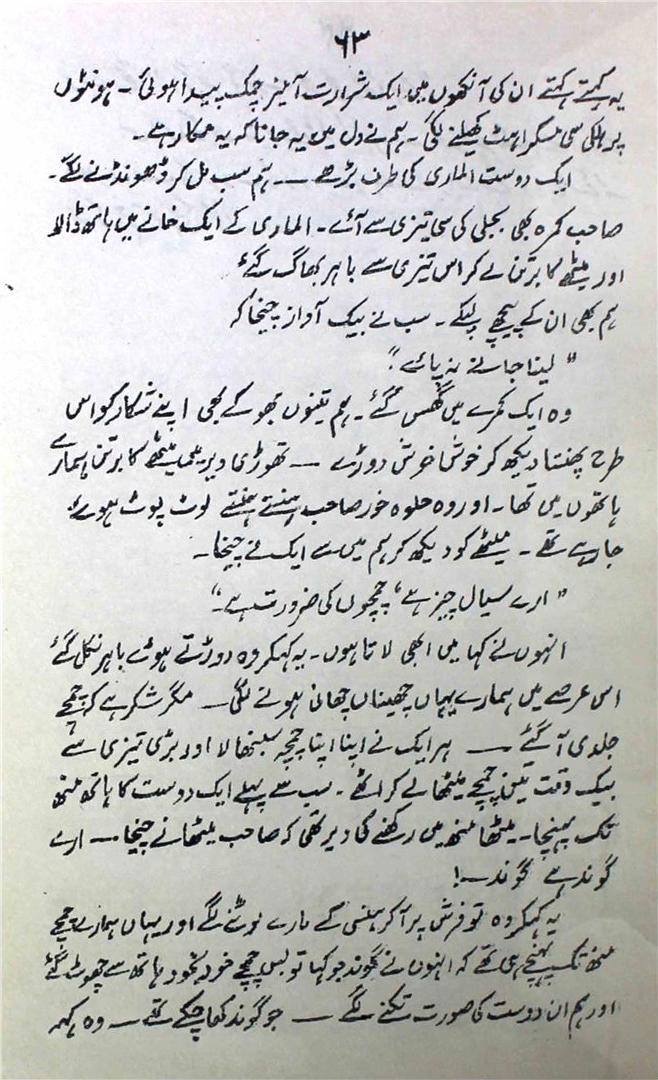 ۶۳
یہ کہتے کہتے ان کی آنکھوں میں ایک شرارت آمیز چمک پیدا ہوئی ۔ ہونٹوں
پر ہلکی سی مسکراہٹ کھیلنے لگی ۔ ہم نے دل میں یہ جانا کہ یہ مکار ہے ۔
ایک دوست الماری کی طرف بڑھے — ہم سب مل کر ڈھونڈنے لگے ۔
صاحب کمرہ بھی بجلی کی سی تیزی سے آئے ۔ الماری کے ایک خانے میں ہاتھ ڈالا
اور میٹھے کا برتن لے کر اس تیزی سے باہر بھاگ گئے
ہم بھی ان کے پیچھے لپکے ۔ سب نے بیک آواز چیخا کہ
" لینا جانے نہ پائے "
وہ ایک کمرے میں گھس گئے ۔ ہم تینوں بھوکے بھی اپنے شکار کو اس
طرح پھنستا دیکھ کر خوش خوش دوڑے — تھوڑی دیر میں میٹھے کا برتن ہمارے
ہاتھوں میں تھا ۔ اور وہ حلوہ خور صاحب ہنستے ہنستے لوٹ پوٹ ہوئے
جا رہے تھے ۔ میٹھے کو دیکھ کر ہم میں سے ایک نے چیخا ۔
" ارے سیال چیز ہے ، چمچوں کی ضرورت ہے ۔"
انہوں نے کہا میں ابھی لاتا ہوں ۔ یہ کہکر وہ دوڑتے ہوئے باہر نکل گئے
اس عرصے میں ہمارے یہاں چھینا چھانی ہونے لگی — مگر شکر ہے کہ چمچے
جلدی آ گئے — ہر ایک نے اپنا اپنا چمچہ سنبھالا اور بڑی تیزی سے
بیک وقت تین چمچے میٹھا لے کر اٹھے ۔ سب سے پہلے ایک دوست کا ہاتھ منھ
تک پہنچا ۔ میٹھا منھ میں رکھنے کی دیر تھی کہ صاحب میٹھا نے چیخا — ارے
گوند ہے گوند —!
یہ کہکر وہ تو فرش پر آ کر ہنسی کے مارے لوٹنے لگے اور یہاں ہمارے چمچے
منھ تک پہنچے ہی تھے کہ انہوں نے گوند جو کہا تو بس چمچے خود بخود ہاتھ سے چھوٹ گئے
اور ہم ان دوست کی صورت تکنے لگے — جو گوند کھا چکے تھے — وہ کہہ